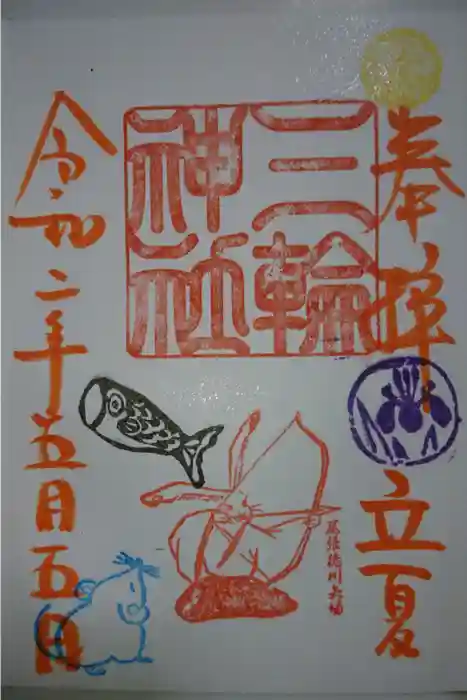 奉拝
立夏
三輪
神社
尾張徳川矢場
令和二年五月五日